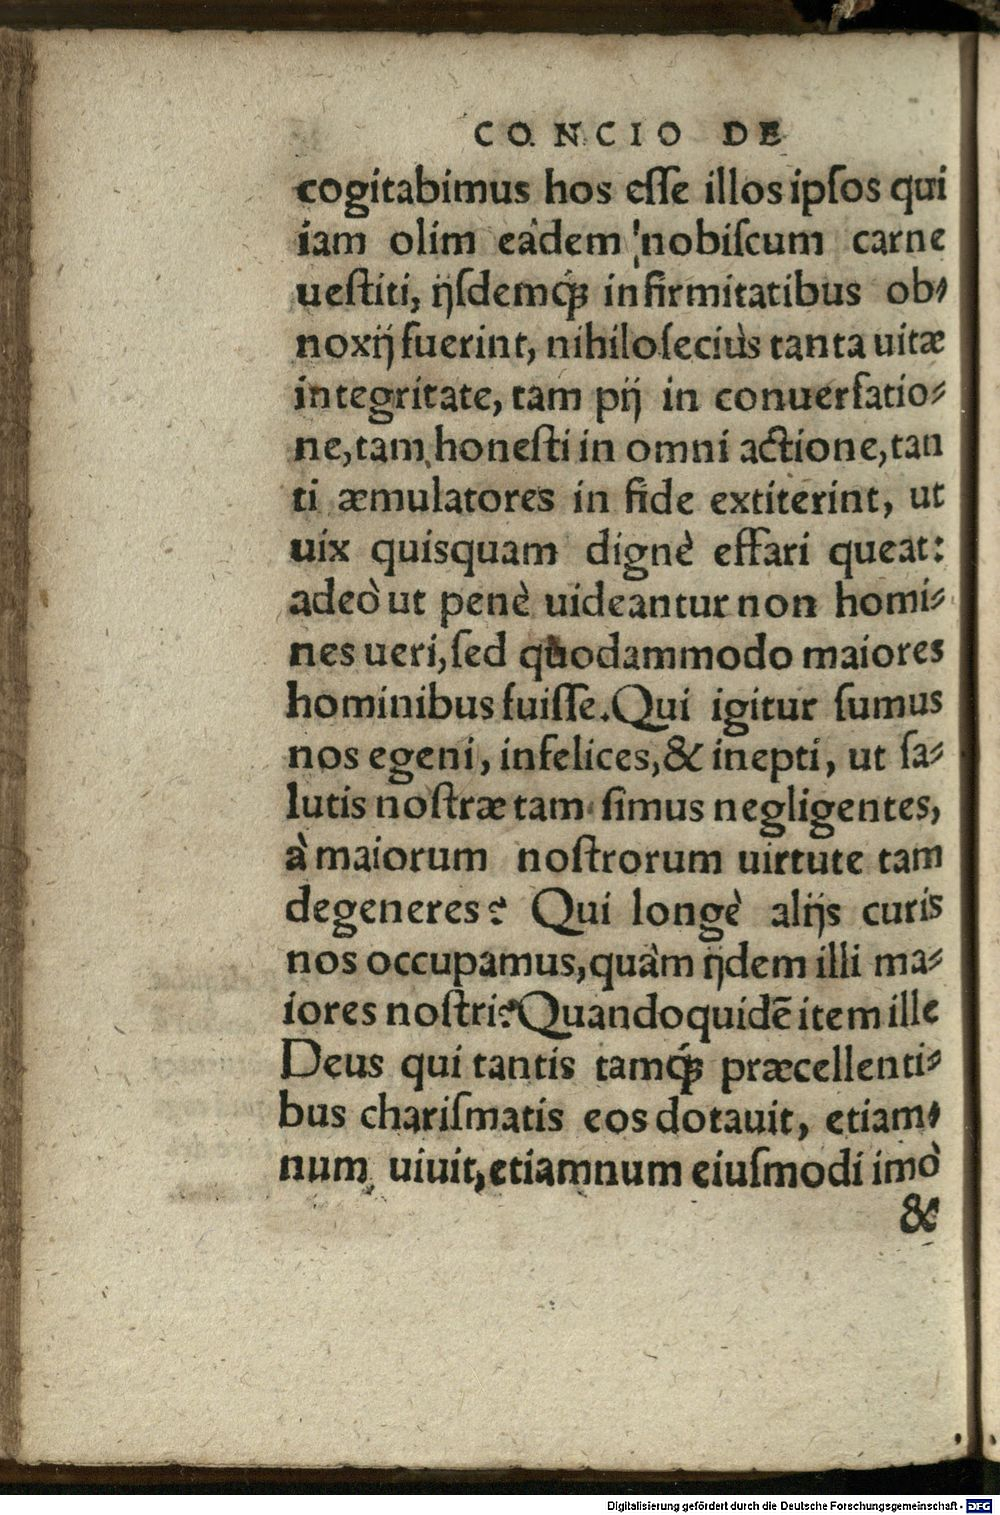 CONCIO DE
cogitabimus hos eſſe illos ipſos qui
iam olim eâdem nobiſcum carne
ueſtiti, ijſdemq́ꝫ infirmitatibus ob-
noxij fuerint, nihiloſeciùs tanta uitæ
integritate, tam pij in conuerſatio-
ne, tam honeſti in omni actione, tan
ti æmulatores in fide extiterint, ut
uix quisquam dignè effari queat:
adeò ut penè uideantur non homi-
nes ueri, ſed quodammodo maiores
hominibus fuiſſe. Qui igitur ſumus
nos egeni, infelices, & inepti, ut ſa-
lutis noſtræ tam ſimus negligentes,
à maiorum noſtrorum uirtute tam
degeneres? Qui longè alijs curis
nos occupamus, quàm ijdem illi ma-
iores noſtri? Quandoquidẽ item ille
Deus qui tantis tamq́ꝫ præcellenti-
bus chariſmatis eos dotauit, etiam-
num uiuit, etiamnum eiuſmodi imò
&
Digitalisierung gefördert durch die Deutsche Forschungsgemeinschaft - DFG